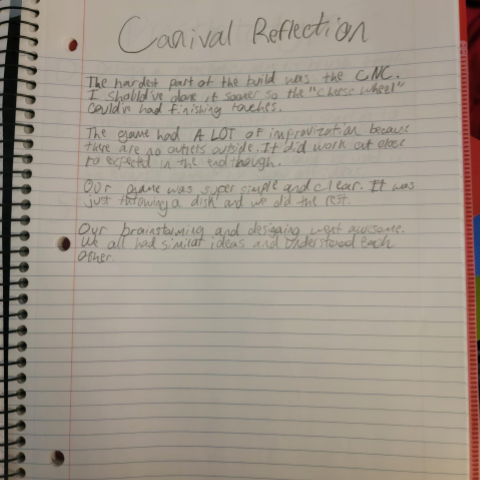 Canival Reflection
The hardest part of the build was the CNC.
I should've done it sooner so the "cheese wheel"
could've had finishing touches.
The game had A LOT of improvization because
there are no outlets outside. It did work out close
to expected in the end though.
Our game was super simple and clear. It was
just throwing a disk and we did the rest.
Our brainstorming and designing went awesome.
We all had similar ideas and understood each
other.